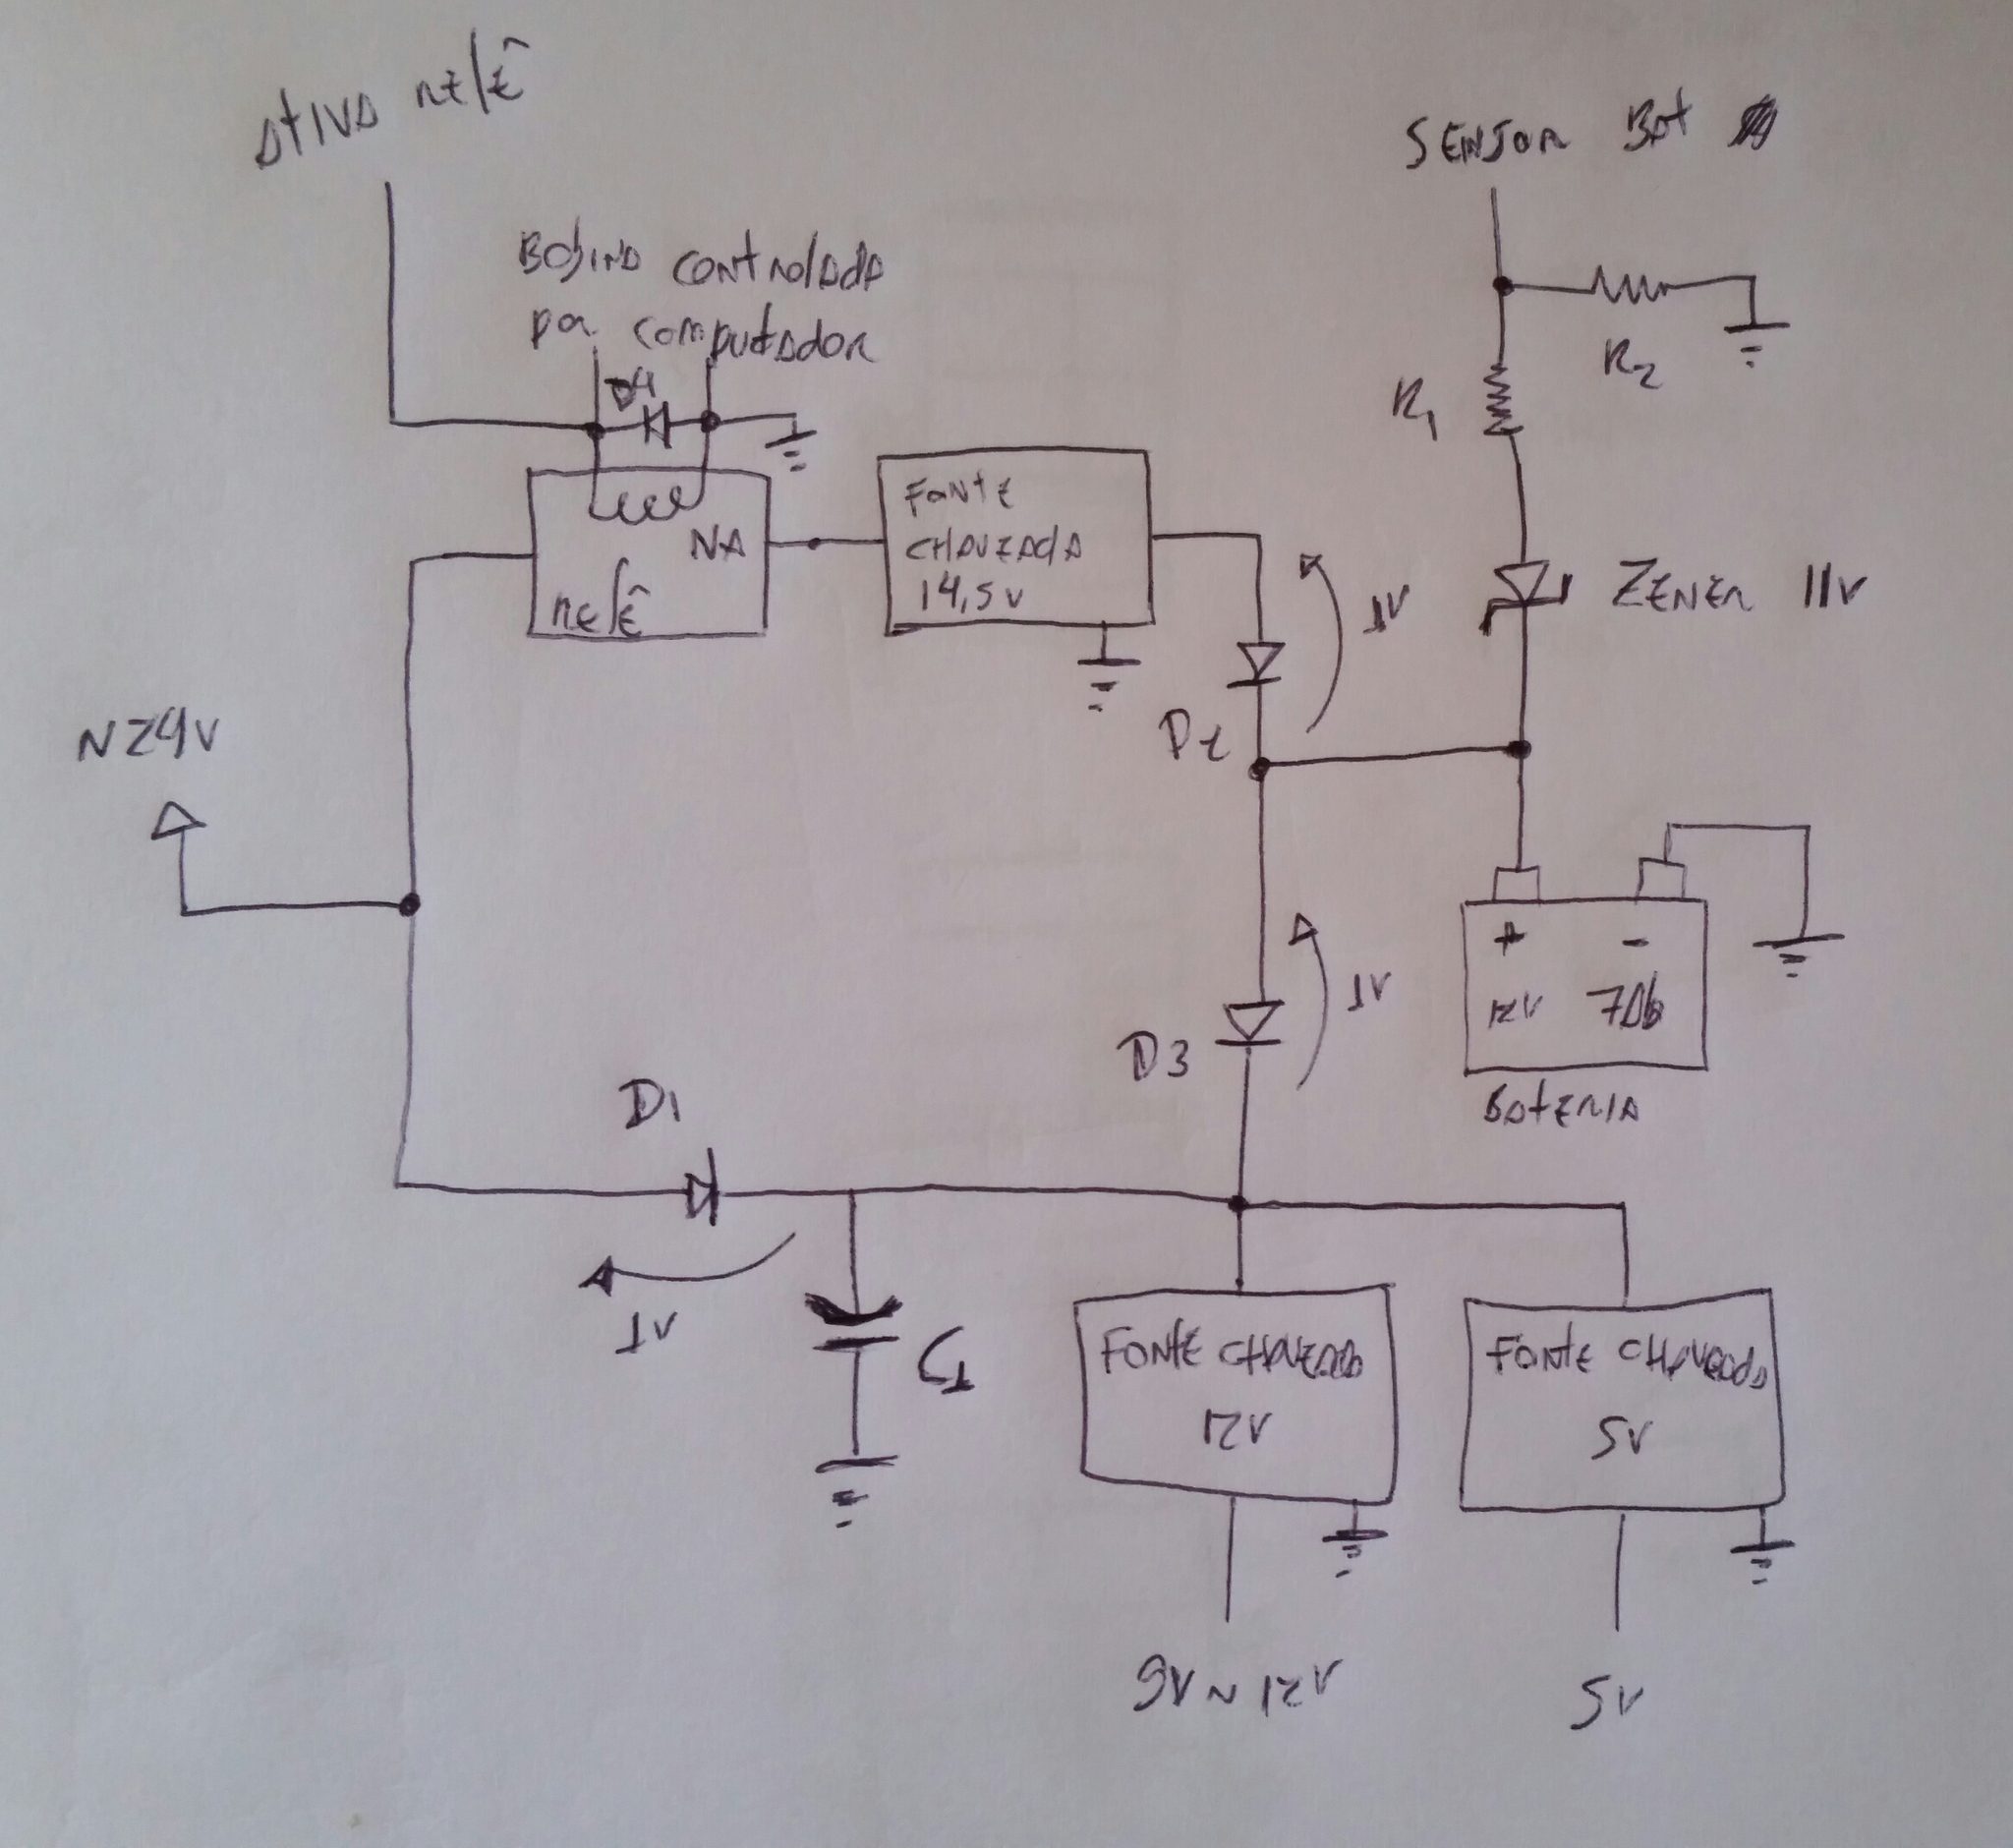 Ativa relê
SENSOR Bat
Bobina controlada
por computador
D4
R2
R1
NA
relê
FONTE
CHAVEADA
14,5V
1V
ZENER 11V
N24V
D2
+ -
12V 7Ah
BATERIA
1V
D3
D1
1V
C1
FONTE CHAVEADA
12V
FONTE CHAVEADA
5V
9V ~ 12V
5V